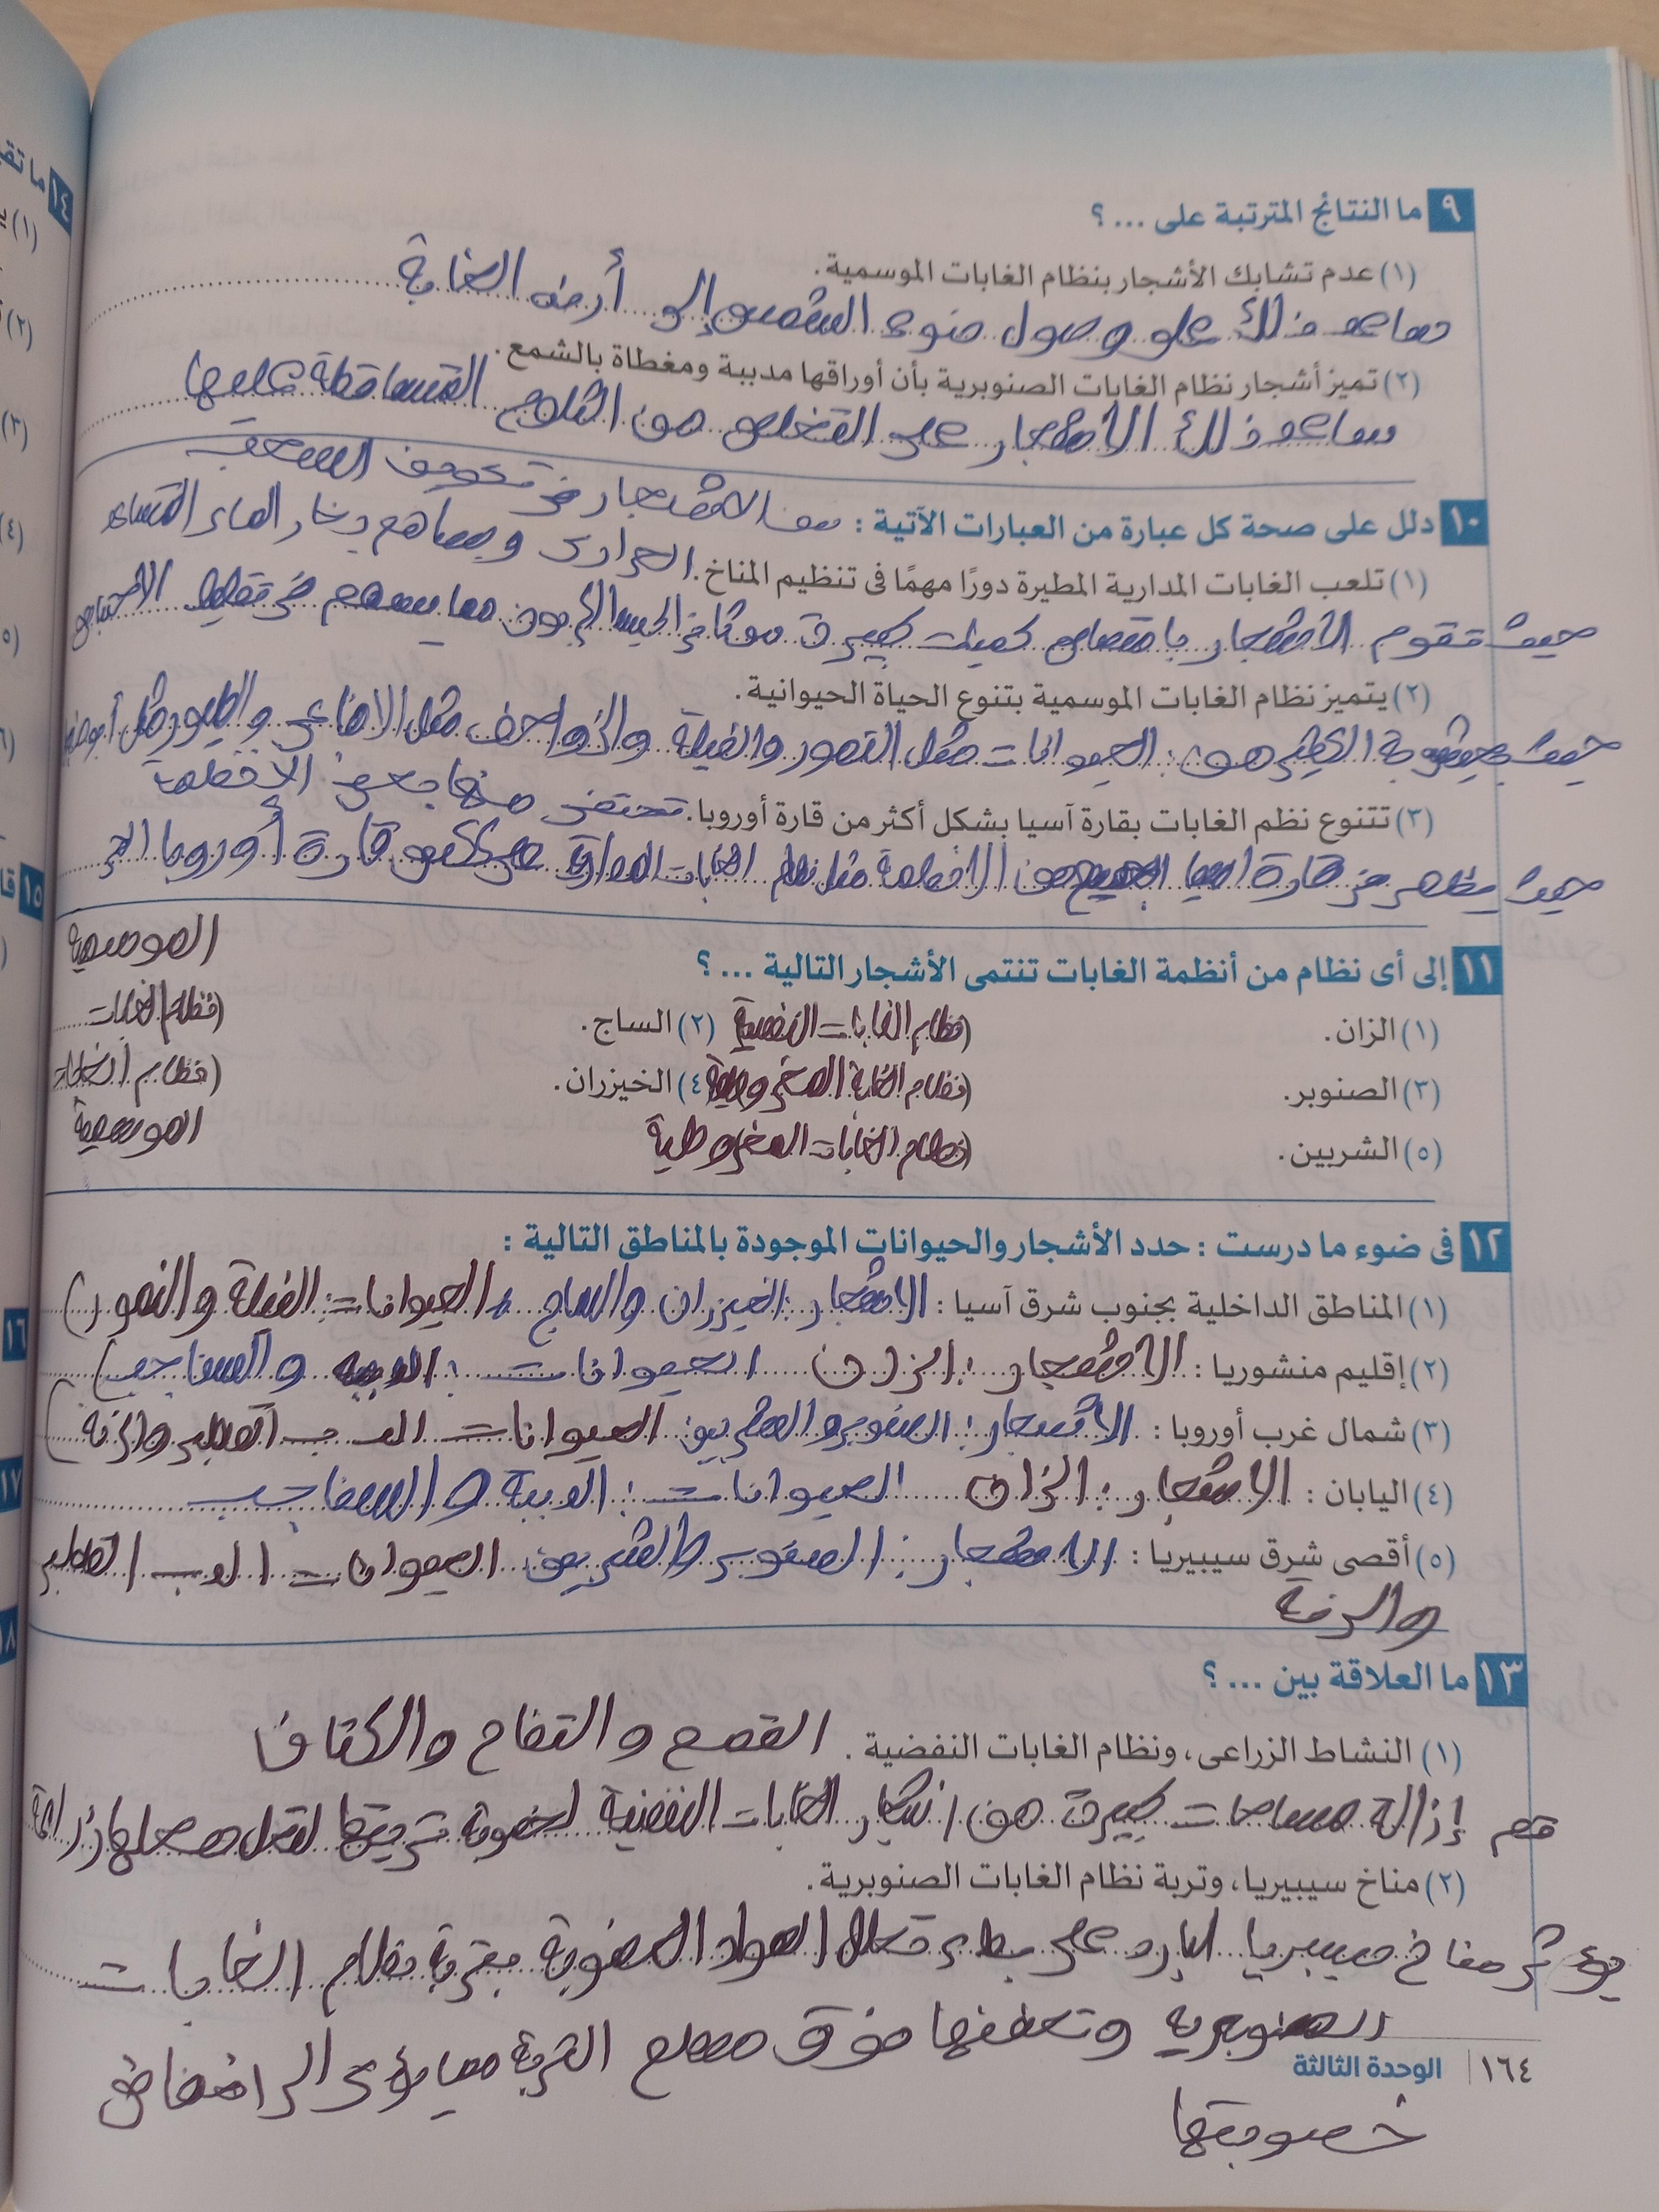 ٩ ما النتائج المترتبة على ... ؟
(١) عدم تشابك الأشجار بنظام الغابات الموسمية.
ساعد ذلك على وصول ضوء الشمس إلى أرض الغابة
(٢) تميز أشجار نظام الغابات الصنوبرية بأن أوراقها مدببة ومغطاة بالشمع.
ساعد ذلك الأشجار على التخلص من الثلوج المتساقطة عليها
١٠ دلل على صحة كل عبارة من العبارات الآتية :
من الاشجار في تكوين السحب
(١) تلعب الغابات المدارية المطيرة دورًا مهمًا فى تنظيم المناخ.
الحرارى ويساهم بخار الماء المتساعد
حيث تقوم الأشجار بامتصاص كميات كبيرة من ثاني اكسيد الكربون مما يسهم في تقليل الاحتباس
(٢) يتميز نظام الغابات الموسمية بتنوع الحياة الحيوانية.
حيث يعيش به الكثير من : الحيوانات مثل النمور والفيلة والزواحف مثل الافاعى والطيور مثل
(٣) تتنوع نظم الغابات بقارة آسيا بشكل أكثر من قارة أوروبا.
تختفى منها بعض الانظمة
حيث يظهر في قارة اسيا الانظمة مثل نظام الغابات المدارية على عكس قارة أوروبا التى
١١ إلى أى نظام من أنظمة الغابات تنتمى الأشجار التالية ... ؟
(١) الزان. (نظام الغابات النفضية) (٢) الساج. (نظام الغابات الموسمية
(٣) الصنوبر. (نظام الغابة المخروطية (٤) الخيزران. (نظام الغابات الموسمية
(٥) الشربين. (نظام الغابات المخروطية
١٢ فى ضوء ما درست : حدد الأشجار والحيوانات الموجودة بالمناطق التالية :
(١) المناطق الداخلية بجنوب شرق آسيا : الاشجار : الخيزران والساج ، الحيوانات : الفيلة والنمور)
(٢) إقليم منشوريا : الاشجار : الزان الحيوانات : الدببه والسناجب)
(٣) شمال غرب أوروبا : الأشجار : الصنوبر والشربين الحيوانات الدب القطبى والرنة)
(٤) اليابان : الاشجار : الزان الحيوانات : الدببة والسناجب
(٥) أقصى شرق سيبيريا : الاشجار : الصنوبر والشربين الحيوانات الدب القطبى
والرنة
١٣ ما العلاقة بين ... ؟
(١) النشاط الزراعى، ونظام الغابات النفضية. القمح والتفاح والكتان
تم إزالة مساحات كبيرة من اشجار الغابات النفضية لخصوبة تربتها لتحل محلها زراعة
(٢) مناخ سيبيريا، وتربة نظام الغابات الصنوبرية.
يؤثر مناخ سيبيريا البارد على بطء تحلل المواد العضوية بتربة نظام الغابات
الصنوبريه وتعفنها فوق سطح التربة مما يؤدى الى انخفاض
خصوبتها
١٦٤ | الوحدة الثالثة
١٤ ما
١٥
١٦
١٧